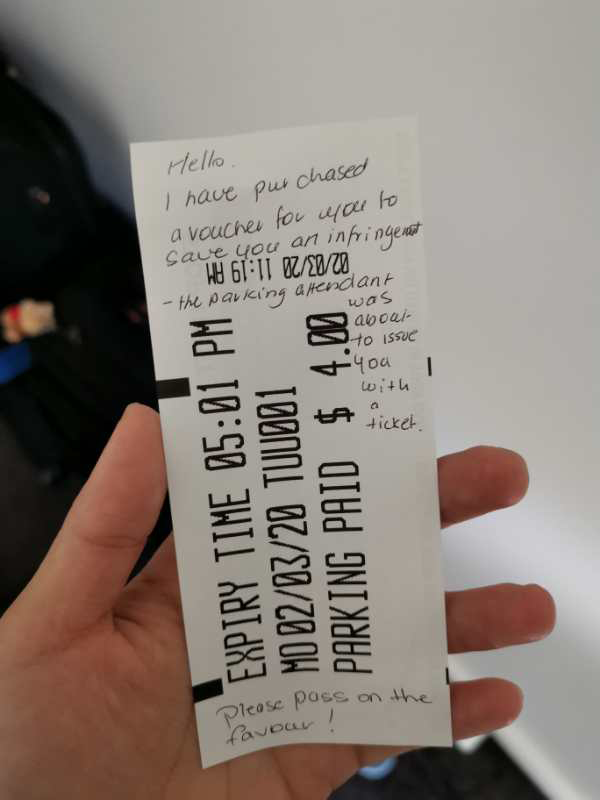 Hello.
I have purchased
a voucher for you to
save you an infringement
02/03/20 11:19 AM
- the parking attendant
was
about
to issue
you
with
a
ticket.
EXPIRY TIME 05:01 PM
MO 02/03/20 TUU001
PARKING PAID $ 4.00
Please pass on the
favour!